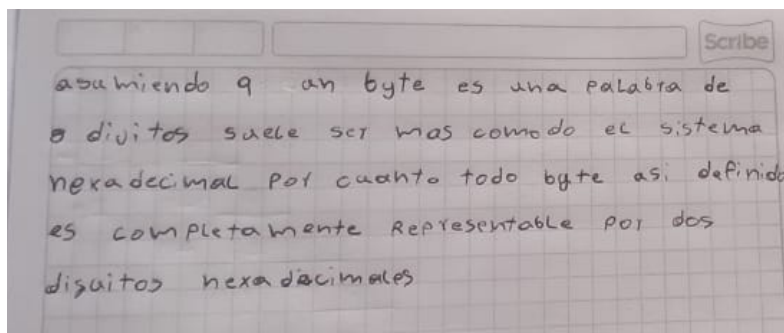 Scribe
asumiendo q un byte es una palabra de
8 divitos suele ser mas comodo el sistema
hexadecimal por cuanto todo byte asi definido
es completamente Representable por dos
diguitos hexadecimales